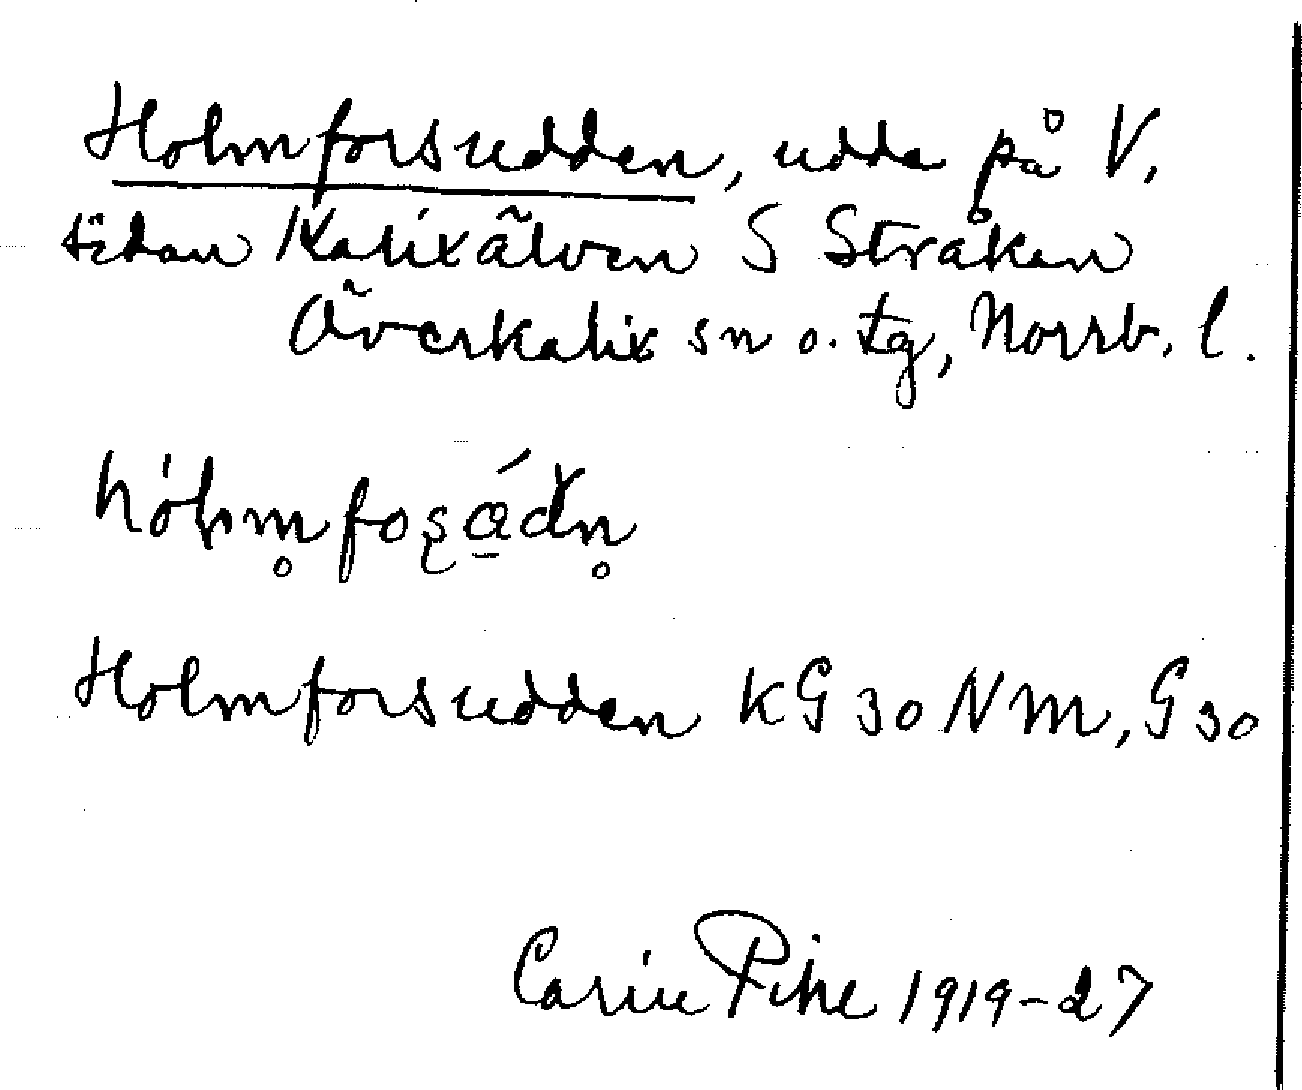 Holmforsudden, udde på V.
sidan Kalixälven S Stråkan
Överkalix sn o. tg, Norrb. l.
Holmforsudden KG 30 NM, G30
Carin Pihl 1919-27